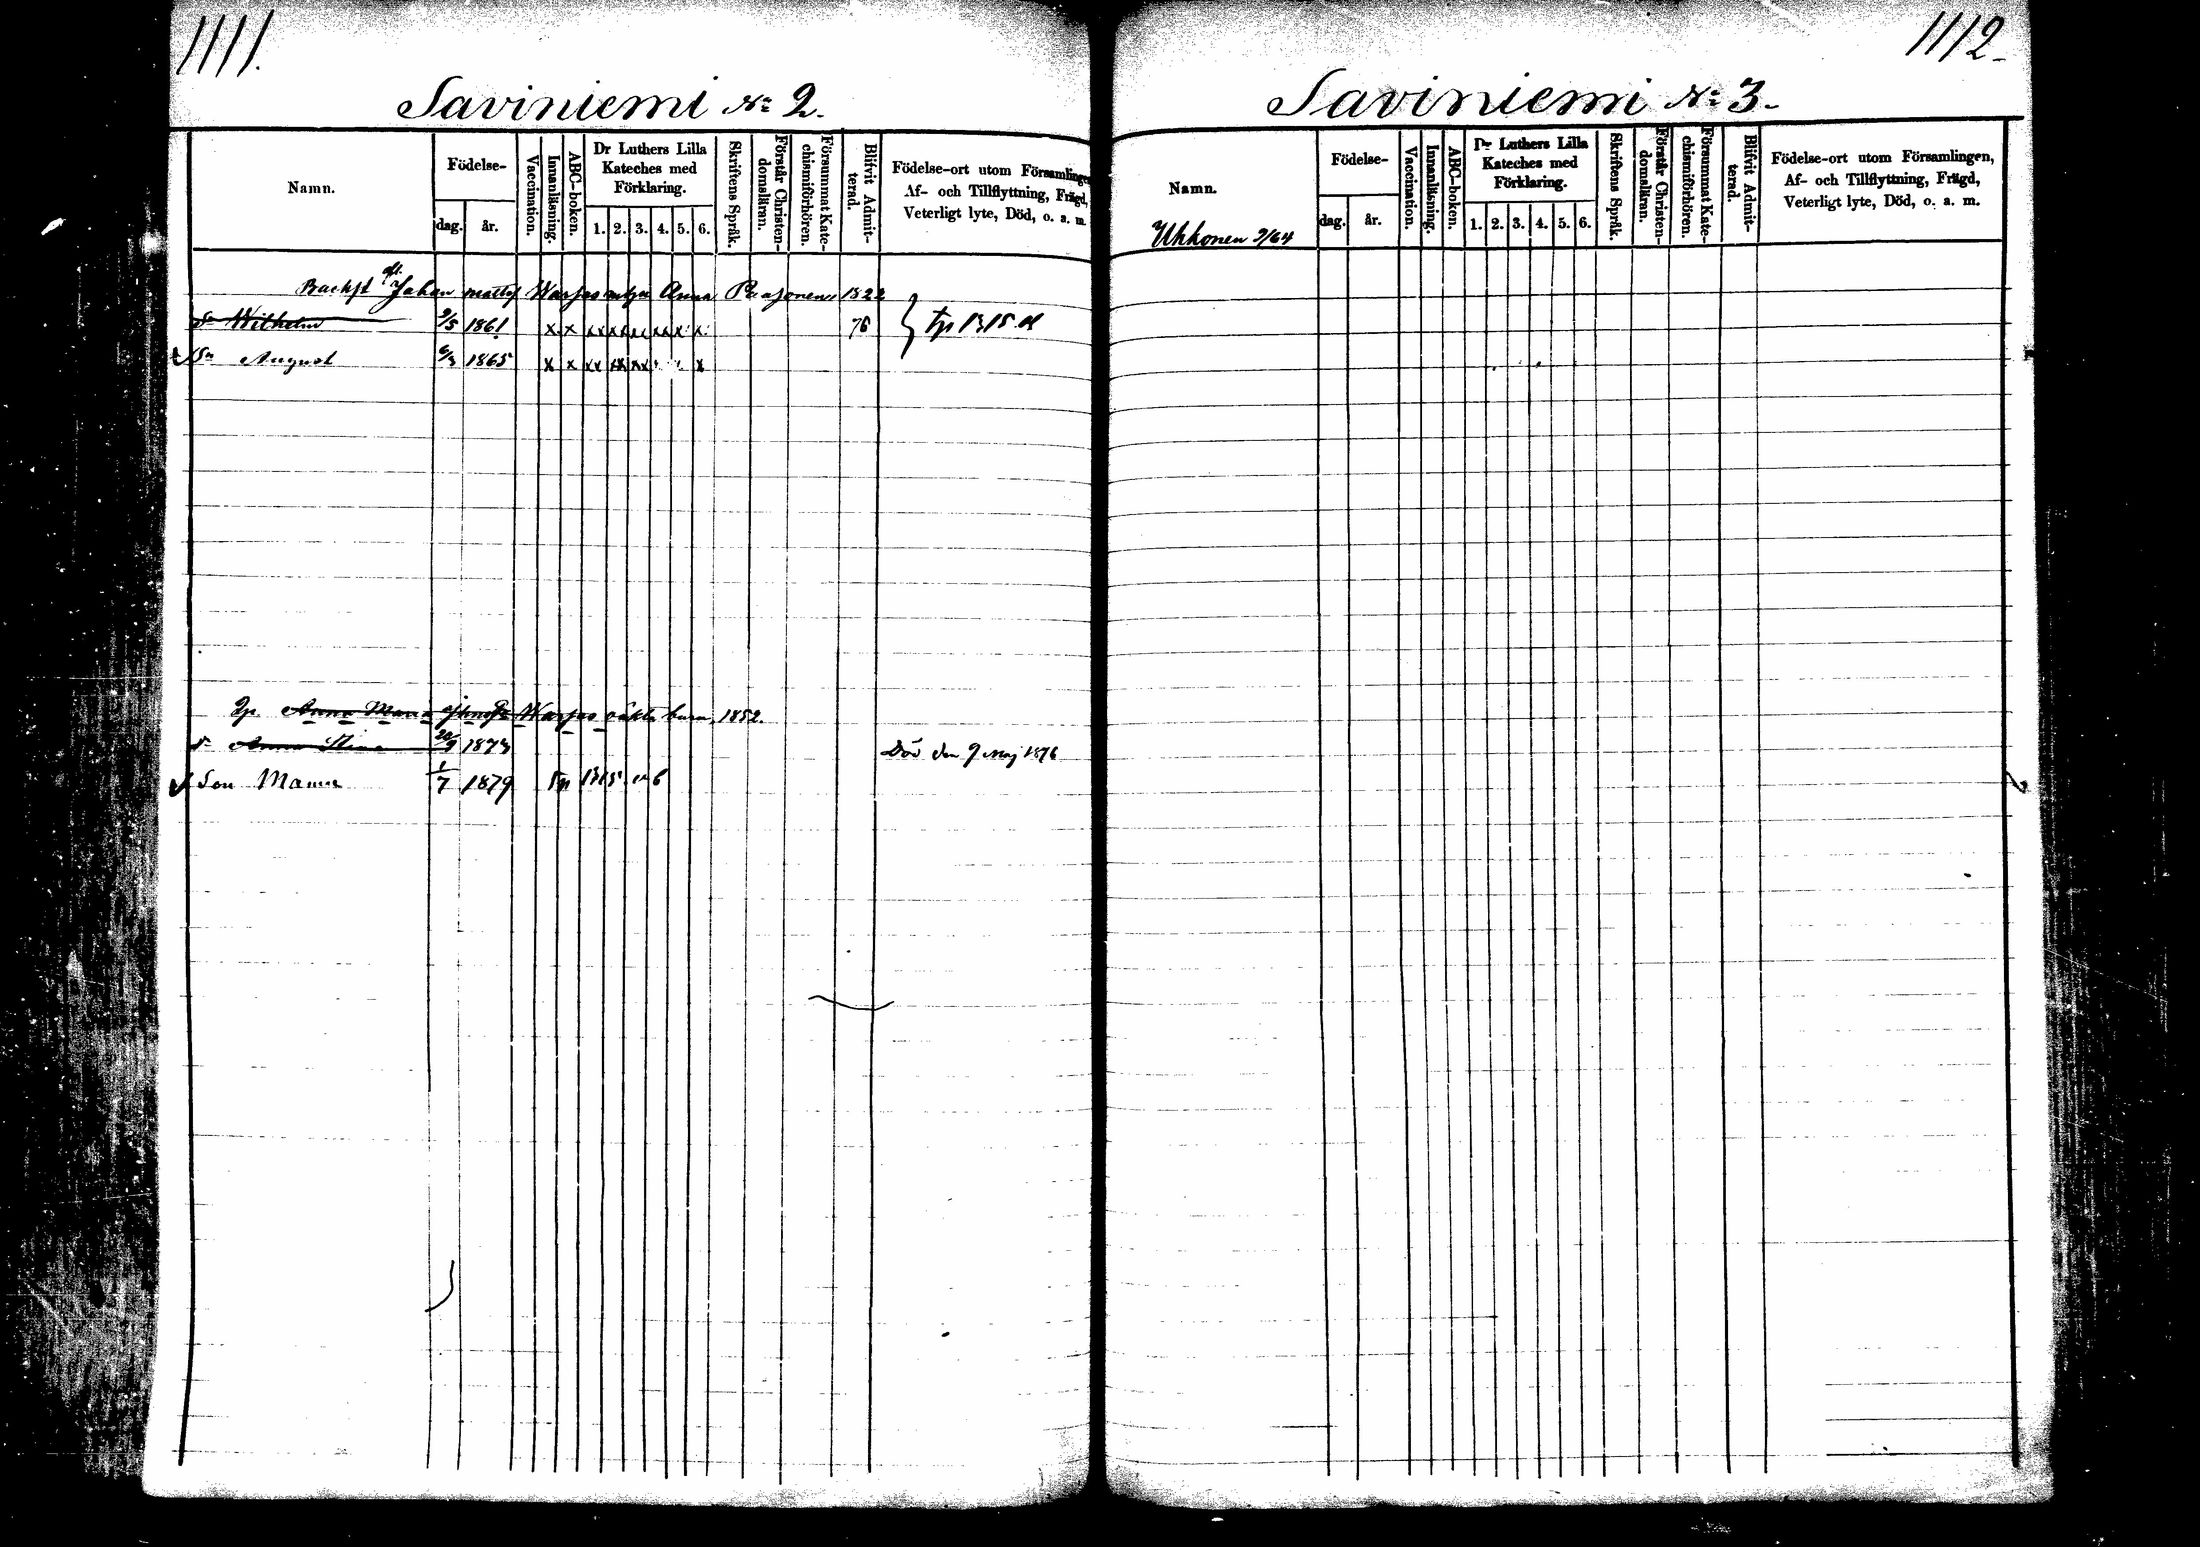 1111.
Saviniemi No 2.
Namn.
Födelse-
dag. år.
Vaccination.
Innanläsning.
ABC-boken.
Dr Luthers Lilla
Kateches med
Förklaring.
1. 2. 3. 4. 5. 6.
Skriftens Språk.
Förstår Christen-
domsläran.
Försummat Kate-
chismiförhören.
Blifvit Admit-
terad.
Födelse-ort utom Församlingen,
Af- och Tillflyttning, Frägd,
Veterligt lyte, Död, o. a. m.
Johan Warpas Anna 1822
Wilhelm 9/5 1861 x x xx xx xx xx x x 76
Sn August 6/3 1865 x x xx xx xx x
Anna Maria Warpas barn, 1852.
Anna Stina 20/9 1873 Död den 9 Maj 1876
Son Manu 1/7 1879
1112.
Saviniemi No 3.
Namn.
Ukkonen 9/64
Födelse-
dag. år.
Vaccination.
Innanläsning.
ABC-boken.
Dr Luthers Lilla
Kateches med
Förklaring.
1. 2. 3. 4. 5. 6.
Skriftens Språk.
Förstår Christen-
domsläran.
Försummat Kate-
chismiförhören.
Blifvit Admit-
terad.
Födelse-ort utom Församlingen,
Af- och Tillflyttning, Frägd,
Veterligt lyte, Död, o. a. m.